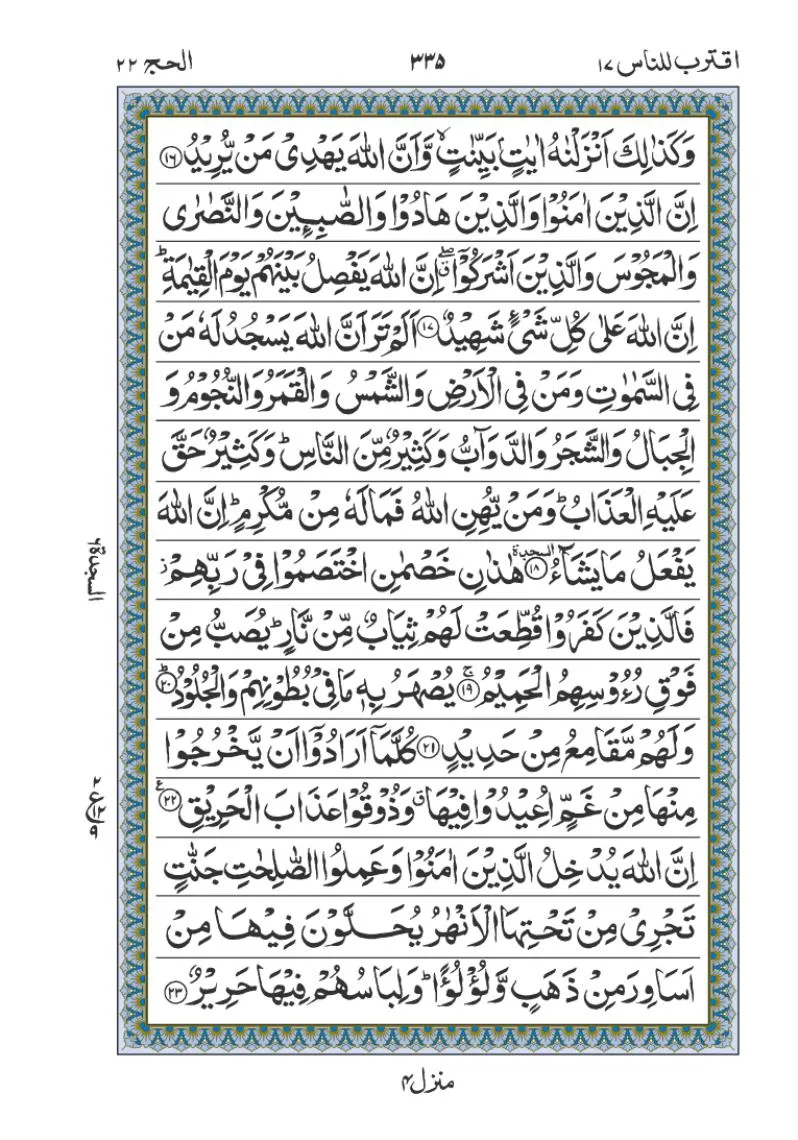 اقترب للناس ١٧ ٣٣٥ الحج ٢٢
وَكَذٰلِكَ اَنْزَلْنٰهُ اٰيٰتٍۭ بَيِّنٰتٍۙ وَّاَنَّ اللّٰهَ يَهْدِىْ مَنْ يُّرِيْدُ ﴿١٦﴾
اِنَّ الَّذِيْنَ اٰمَنُوْا وَالَّذِيْنَ هَادُوْا وَالصّٰبِـِٕيْنَ وَالنَّصٰرٰى
وَالْمَجُوْسَ وَالَّذِيْنَ اَشْرَكُوْۤا ۖق اِنَّ اللّٰهَ يَفْصِلُ بَيْنَهُمْ يَوْمَ الْقِيٰمَةِؕ
اِنَّ اللّٰهَ عَلٰى كُلِّ شَىْءٍ شَهِيْدٌ ﴿١٧﴾ اَلَمْ تَرَ اَنَّ اللّٰهَ يَسْجُدُ لَهٗ مَنْ
فِى السَّمٰوٰتِ وَمَنْ فِى الْاَرْضِ وَالشَّمْسُ وَالْقَمَرُ وَالنُّجُوْمُ وَ
الْجِبَالُ وَالشَّجَرُ وَالدَّوَآبُّ وَكَثِيْرٌ مِّنَ النَّاسِؕ وَكَثِيْرٌ حَقَّ
عَلَيْهِ الْعَذَابُؕ وَمَنْ يُّهِنِ اللّٰهُ فَمَا لَهٗ مِنْ مُّكْرِمٍؕ اِنَّ اللّٰهَ
يَفْعَلُ مَا يَشَآءُ ﴿١٨﴾ السجدة هٰذٰنِ خَصْمٰنِ اخْتَصَمُوْا فِىْ رَبِّهِمْز
فَالَّذِيْنَ كَفَرُوْا قُطِّعَتْ لَهُمْ ثِيَابٌ مِّنْ نَّارٍؕ يُصَبُّ مِنْ
فَوْقِ رُءُوْسِهِمُ الْحَمِيْمُ ﴿١٩﴾ۚ يُصْهَرُ بِهٖ مَا فِىْ بُطُوْنِهِمْ وَالْجُلُوْدُ ﴿٢٠﴾ؕ
وَلَهُمْ مَّقَامِعُ مِنْ حَدِيْدٍ ﴿٢١﴾ كُلَّمَاۤ اَرَادُوْۤا اَنْ يَّخْرُجُوْا
مِنْهَا مِنْ غَمٍّ اُعِيْدُوْا فِيْهَاق وَذُوْقُوْا عَذَابَ الْحَرِيْقِ ﴿٢٢﴾ع
اِنَّ اللّٰهَ يُدْخِلُ الَّذِيْنَ اٰمَنُوْا وَعَمِلُوا الصّٰلِحٰتِ جَنّٰتٍ
تَجْرِىْ مِنْ تَحْتِهَا الْاَنْهٰرُ يُحَلَّوْنَ فِيْهَا مِنْ
اَسَاوِرَ مِنْ ذَهَبٍ وَّلُؤْلُؤًاؕ وَلِبَاسُهُمْ فِيْهَا حَرِيْرٌ ﴿٢٣﴾
السجدة ٦
منزل ٤